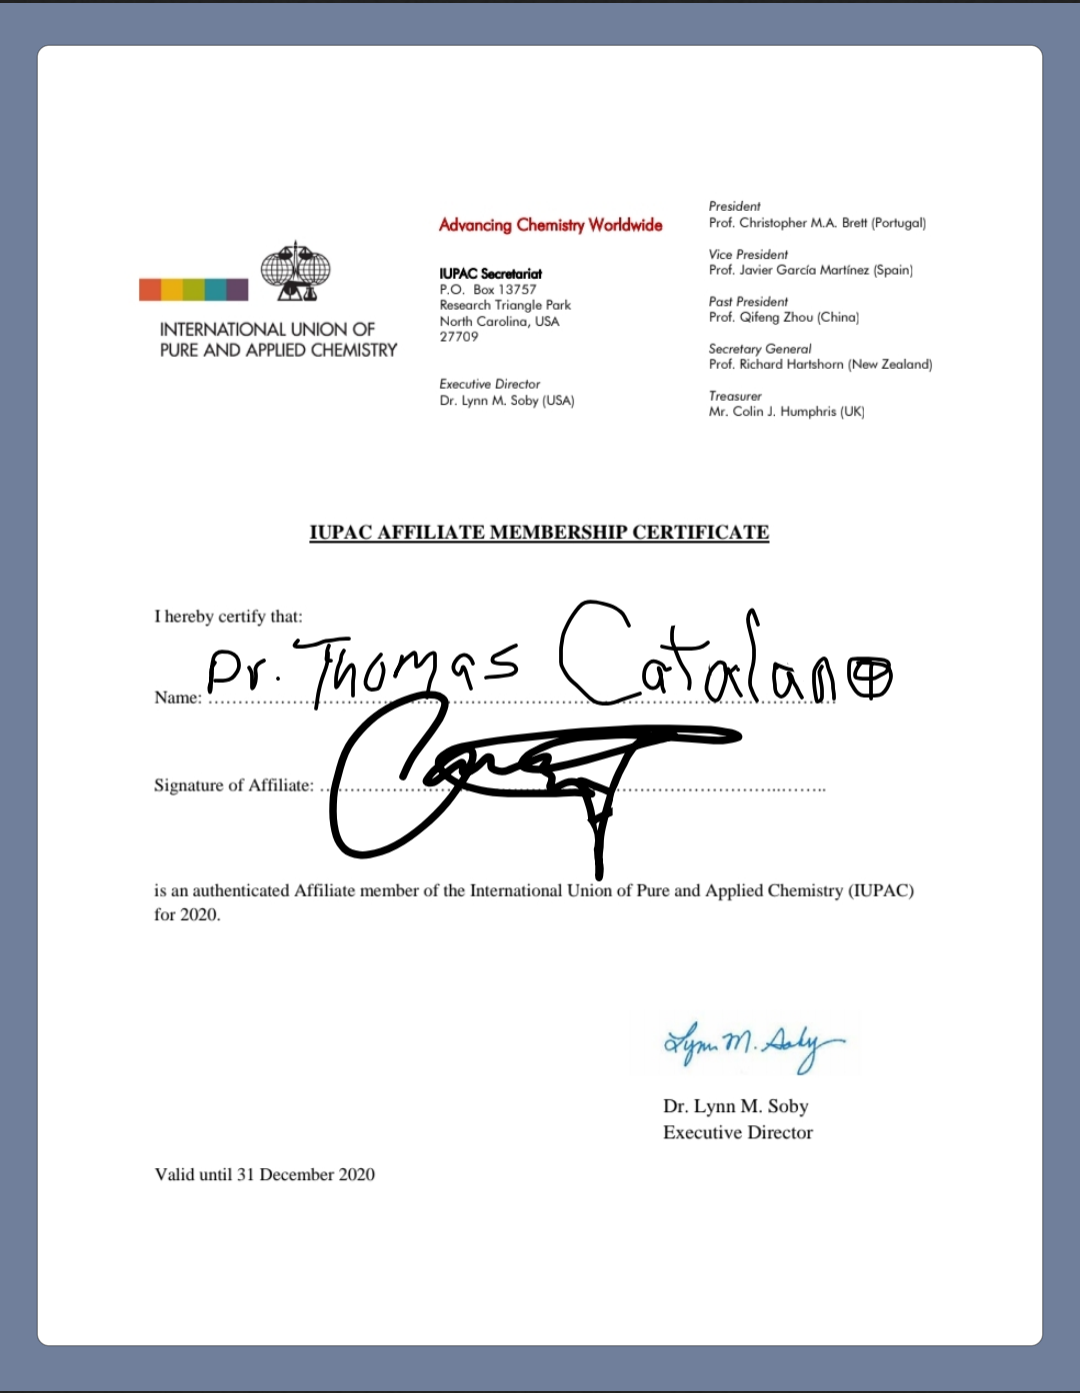 INTERNATIONAL UNION OF
PURE AND APPLIED CHEMISTRY
Advancing Chemistry Worldwide
IUPAC Secretariat
P.O. Box 13757
Research Triangle Park
North Carolina, USA
27709
Executive Director
Dr. Lynn M. Soby (USA)
President
Prof. Christopher M.A. Brett (Portugal)
Vice President
Prof. Javier García Martínez (Spain)
Past President
Prof. Qifeng Zhou (China)
Secretary General
Prof. Richard Hartshorn (New Zealand)
Treasurer
Mr. Colin J. Humphris (UK)
IUPAC AFFILIATE MEMBERSHIP CERTIFICATE
I hereby certify that:
Name: Dr. Thomas Catalano
Signature of Affiliate:
is an authenticated Affiliate member of the International Union of Pure and Applied Chemistry (IUPAC)
for 2020.
Lynn M. Soby
Dr. Lynn M. Soby
Executive Director
Valid until 31 December 2020